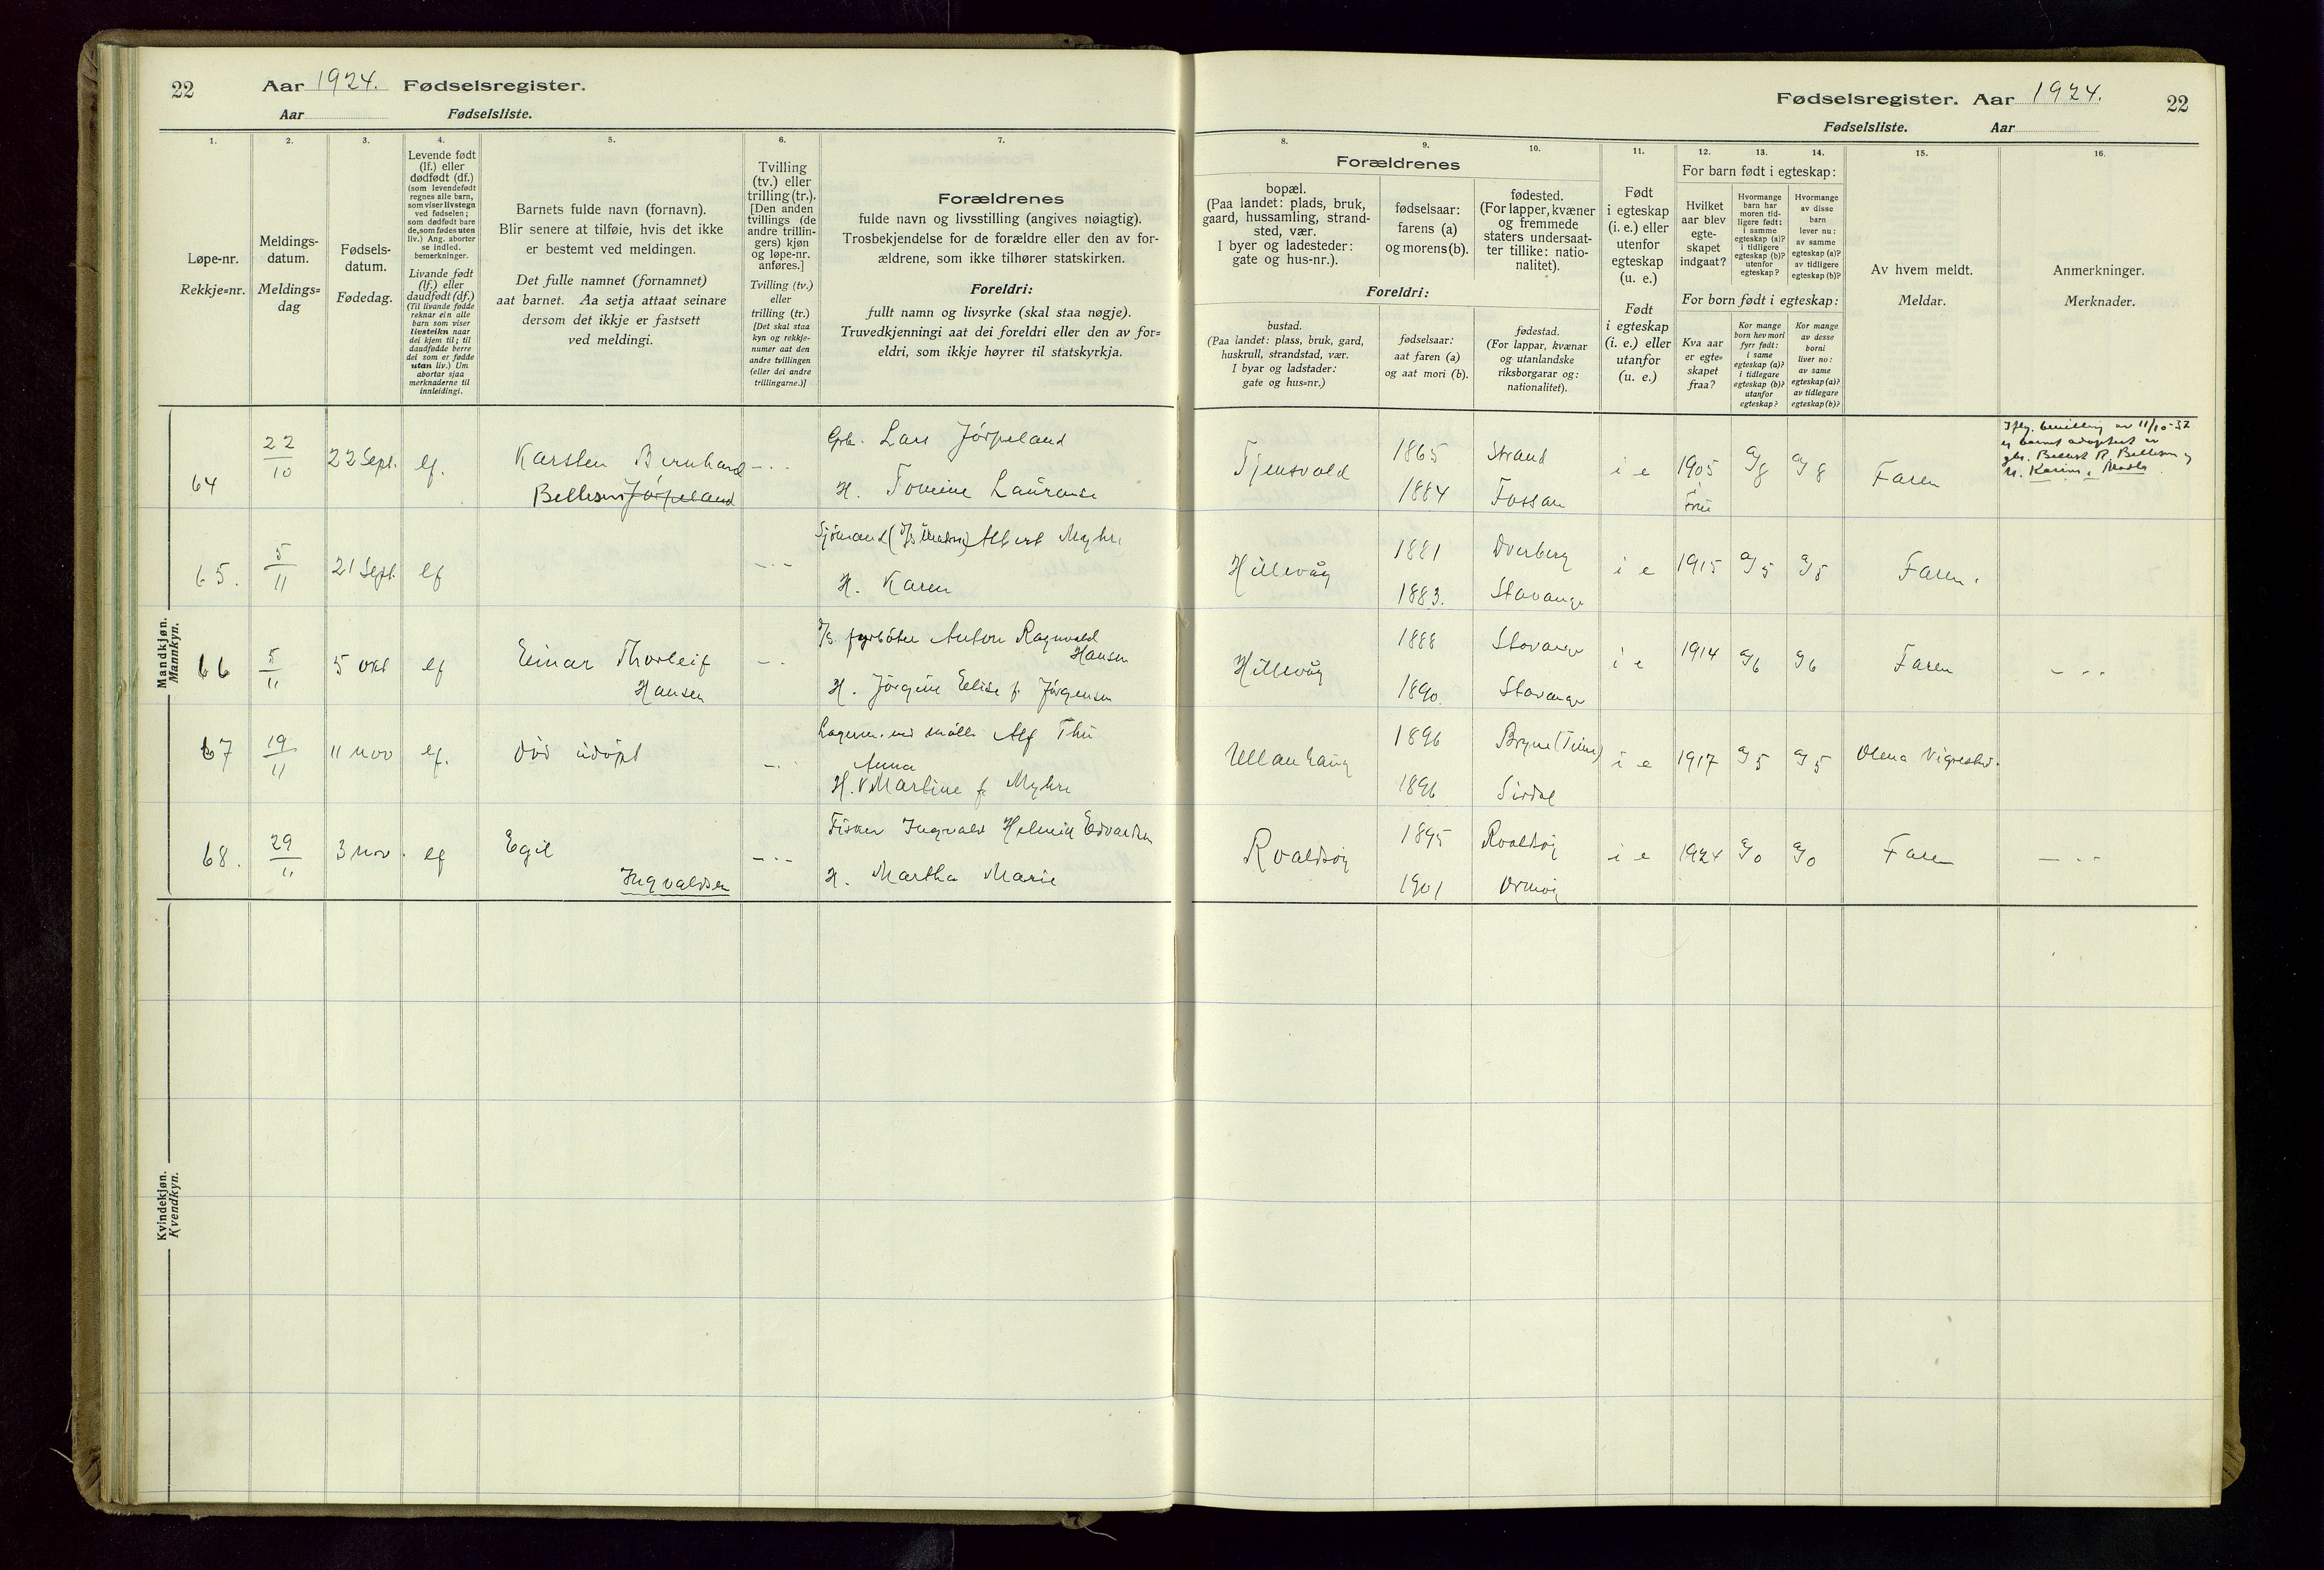 22
Aar 1924. Fødselsregister.
Aar Fødselsliste.
1.
2.
3.
4.
5.
6.
7.
Løpe-nr.
Rekkje=nr.
Meldings-
datum.
Meldings=
dag
Fødsels-
datum.
Fødedag.
Levende født
(lf.) eller
dødfødt (df.)
(som levendefødt
regnes alle barn,
som viser livstegn
ved fødselen;
som dødfødt bare
de, som fødes uten
liv.) Ang. aborter
se indled.
bemerkninger.
Livande født
(lf.) eller
daudfødt (df.)
(Til livande fødde
reknar ein alle
barn som viser
livsteikn naar
dei kjem til; til
daudfødde berre
dei som er fødde
utan liv.) Um
abortar sjaa
merknaderne til
innleidingi.
Barnets fulde navn (fornavn).
Blir senere at tilføie, hvis det ikke
er bestemt ved meldingen.
Det fulle namnet (fornamnet)
aat barnet. Aa setja attaat seinare
dersom det ikkje er fastsett
ved meldingi.
Tvilling
(tv.) eller
trilling (tr.).
[Den anden
tvillings (de
andre trillin-
gers) kjøn
og løpe-nr.
anføres.]
Tvilling (tv.)
eller
trilling (tr.)
[Det skal staa
kyn og rekkje-
numer aat den
andre tvillingen
(eller dei andre
trillingarne.)]
Forældrenes
fulde navn og livsstilling (angives nøiagtig).
Trosbekjendelse for de forældre eller den av for-
ældrene, som ikke tilhører statskirken.
Foreldri:
fullt namn og livsyrke (skal staa nøgje).
Truvedkjenningi aat dei foreldri eller den av for=
eldri, som ikkje høyrer til statskyrkja.
Mandkjøn.
Mannkyn.
64
22/10
22 Sept.
lf.
Karsten Bernhard
Bellesen Jörpeland
Lars Jörpeland
H. Tomine Laurense
65.
5/11
21 Sept.
lf
Sjömand Albert Myhre
H. Karen
66
5/11
5 okt
lf
Einar Thorleif
Hansen
fyrböter Anton Ragnvald
Hansen
H. Jörgine Elise f. Jörgensen
67
19/11
11 nov
lf.
död udöpt
Alf Thu
Anna
H. Martine f. Myhre
68.
29/11
3 nov.
lf
Egil
Ingvaldsen
Fisker Ingvald Edvardsen
H. Martha Marie
Kvindekjøn.
Kvendkyn.
Fødselsregister. Aar 1924.
22
Fødselsliste. Aar
8.
9.
10.
11.
12.
13.
14.
15.
16.
Forældrenes
bopæl.
(Paa landet: plads, bruk,
gaard, hussamling, strand-
sted, vær.
I byer og ladesteder:
gate og hus-nr.).
fødselsaar:
farens (a)
og morens (b).
fødested.
(For lapper, kvæner
og fremmede
staters undersaat-
ter tillike: natio-
nalitet).
Foreldri:
bustad.
(Paa landet: plass, bruk, gard,
huskrull, strandstad, vær.
I byar og ladstader:
gate og hus-nr.)
fødselsaar:
aat faren (a)
og aat mori (b).
fødestad.
(For lappar, kvænar
og utanlandske
riksborgarar og:
nationalitet).
Født
i egteskap
(i. e.) eller
utenfor
egteskap
(u. e.)
Født
i egteskap
(i. e.) eller
utanfor
(u. e.)
For barn født i egteskap:
Hvilket
aar blev
egte-
skapet
indgaat?
Hvormange
barn har
moren tid-
ligere født:
i samme
egteskap (a)?
i tidligere
egteskap (b)?
utenfor
egteskap?
Hvormange
av disse
barn
lever nu:
av samme
egteskap (a)?
av tidligere
egteskap (b)?
For born født i egteskap:
Kva aar
er egte=
skapet
fraa?
Kor mange
born hev mori
fyrr født:
i same
egteskap (a)?
i tidlegare
egteskap (b)?
utanfor
egteskap?
Kor mange
av desse
borni
liver no:
av same
egteskap (a)?
av tidlegare
egteskap (b)?
Av hvem meldt.
Meldar.
Anmerkninger.
Merknader.
Tjensvold
1865
1884
Strand
Fossan
i e
1905
a/8
a/8
Faren
11/10-32
Karine
Hillevåg
1881
1883.
Dverberg
Stavanger
i e
1915
a/5
a/5
Faren.
Hillevåg
1888
1890.
Stavanger
Stavanger
i e
1914
a/6
a/6
Faren
Ullanhaug
1896
1896
Bryne (Time)
Sirdal
i e
1917
a/5
a/5
Olena Vigrestad.
Roaldsöy
1895
1901
Roaldsöy
Ormöy
i e
1924
a/0
a/0
Faren